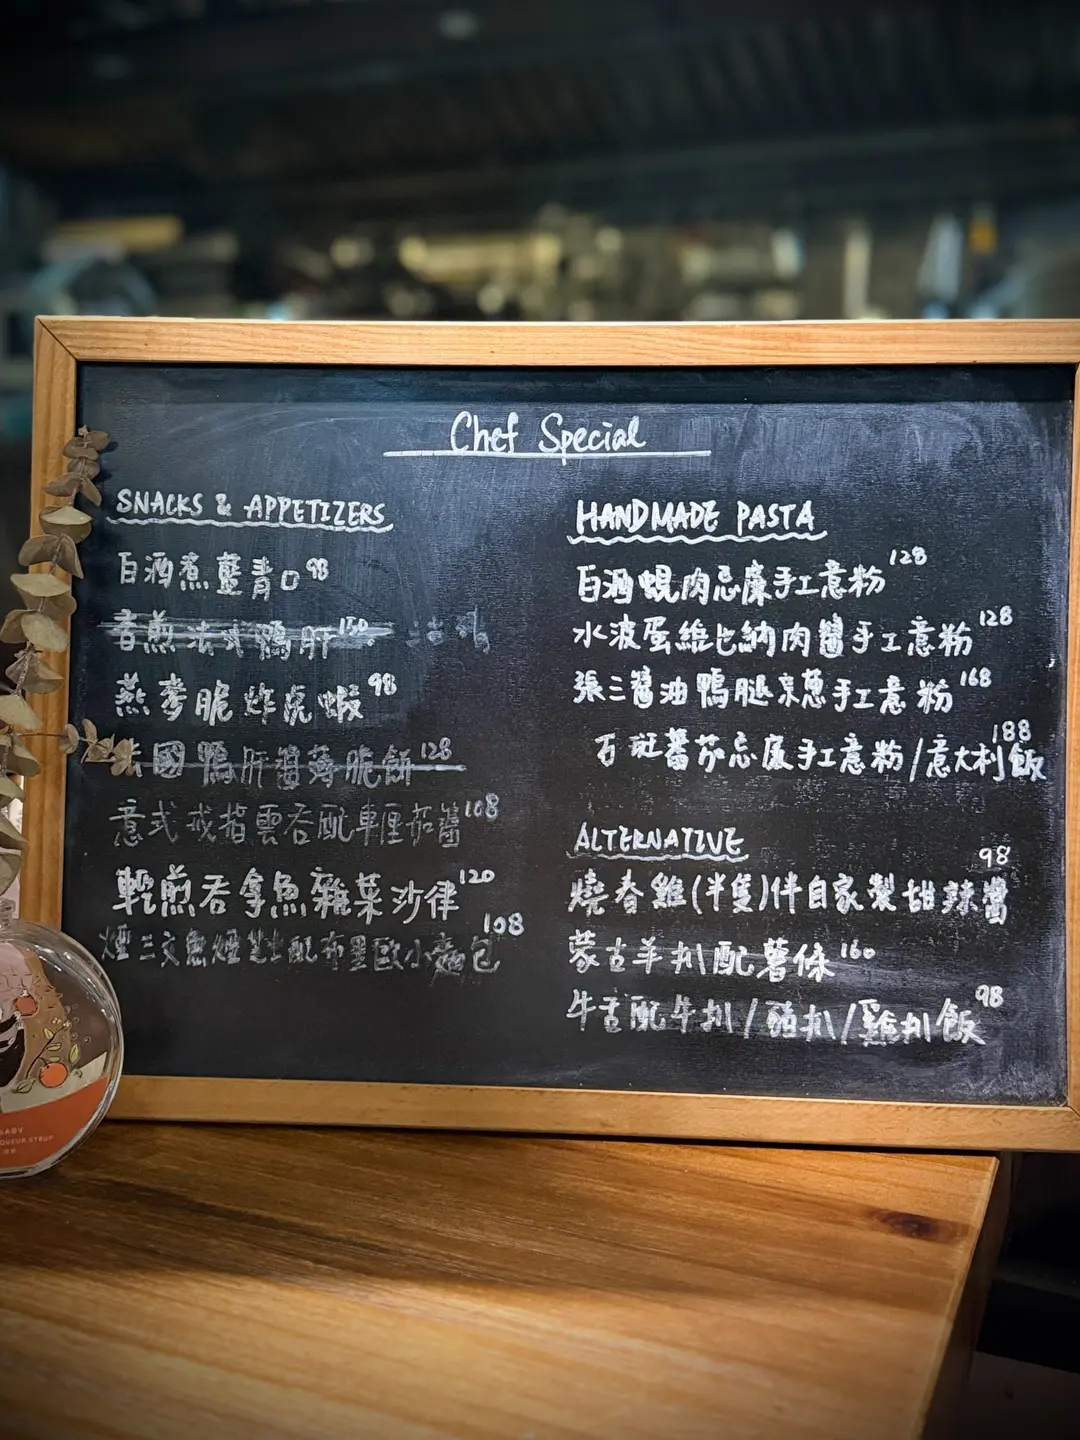 Chef Special
SNACKS & APPETIZERS
白酒煮藍青口 98
香煎法式鴨肝 130
燕麥脆炸虎蝦 98
法國鴨肝醬薄脆餅 128
意式戒指雲吞配車厘茄醬 108
輕煎吞拿魚雜菜沙律 120
煙三文魚煙芝士配布里歐小麵包 108
HANDMADE PASTA
白酒蜆肉忌廉手工意粉 128
水波蛋維也納肉醬手工意粉 128
張三醬油鴨腿京蔥手工意粉 168
石斑蕃茄忌廉手工意粉/意大利飯 188
ALTERNATIVE
燒春雞(半隻)伴自家製甜辣醬 98
蒙古羊扒配薯條 160
牛舌配牛扒/豬扒/雞扒飯 98